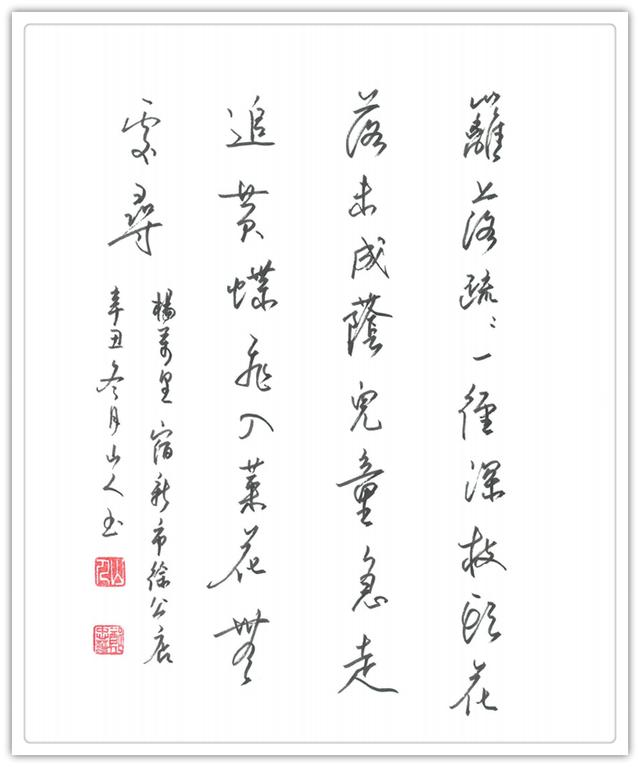 籬落疏:一徑深枝頭花
落未成蔭兒童急走
追黃蝶飛入菜花無
處尋
楊萬里宿新市徐公店
辛丑冬月山人書
山人